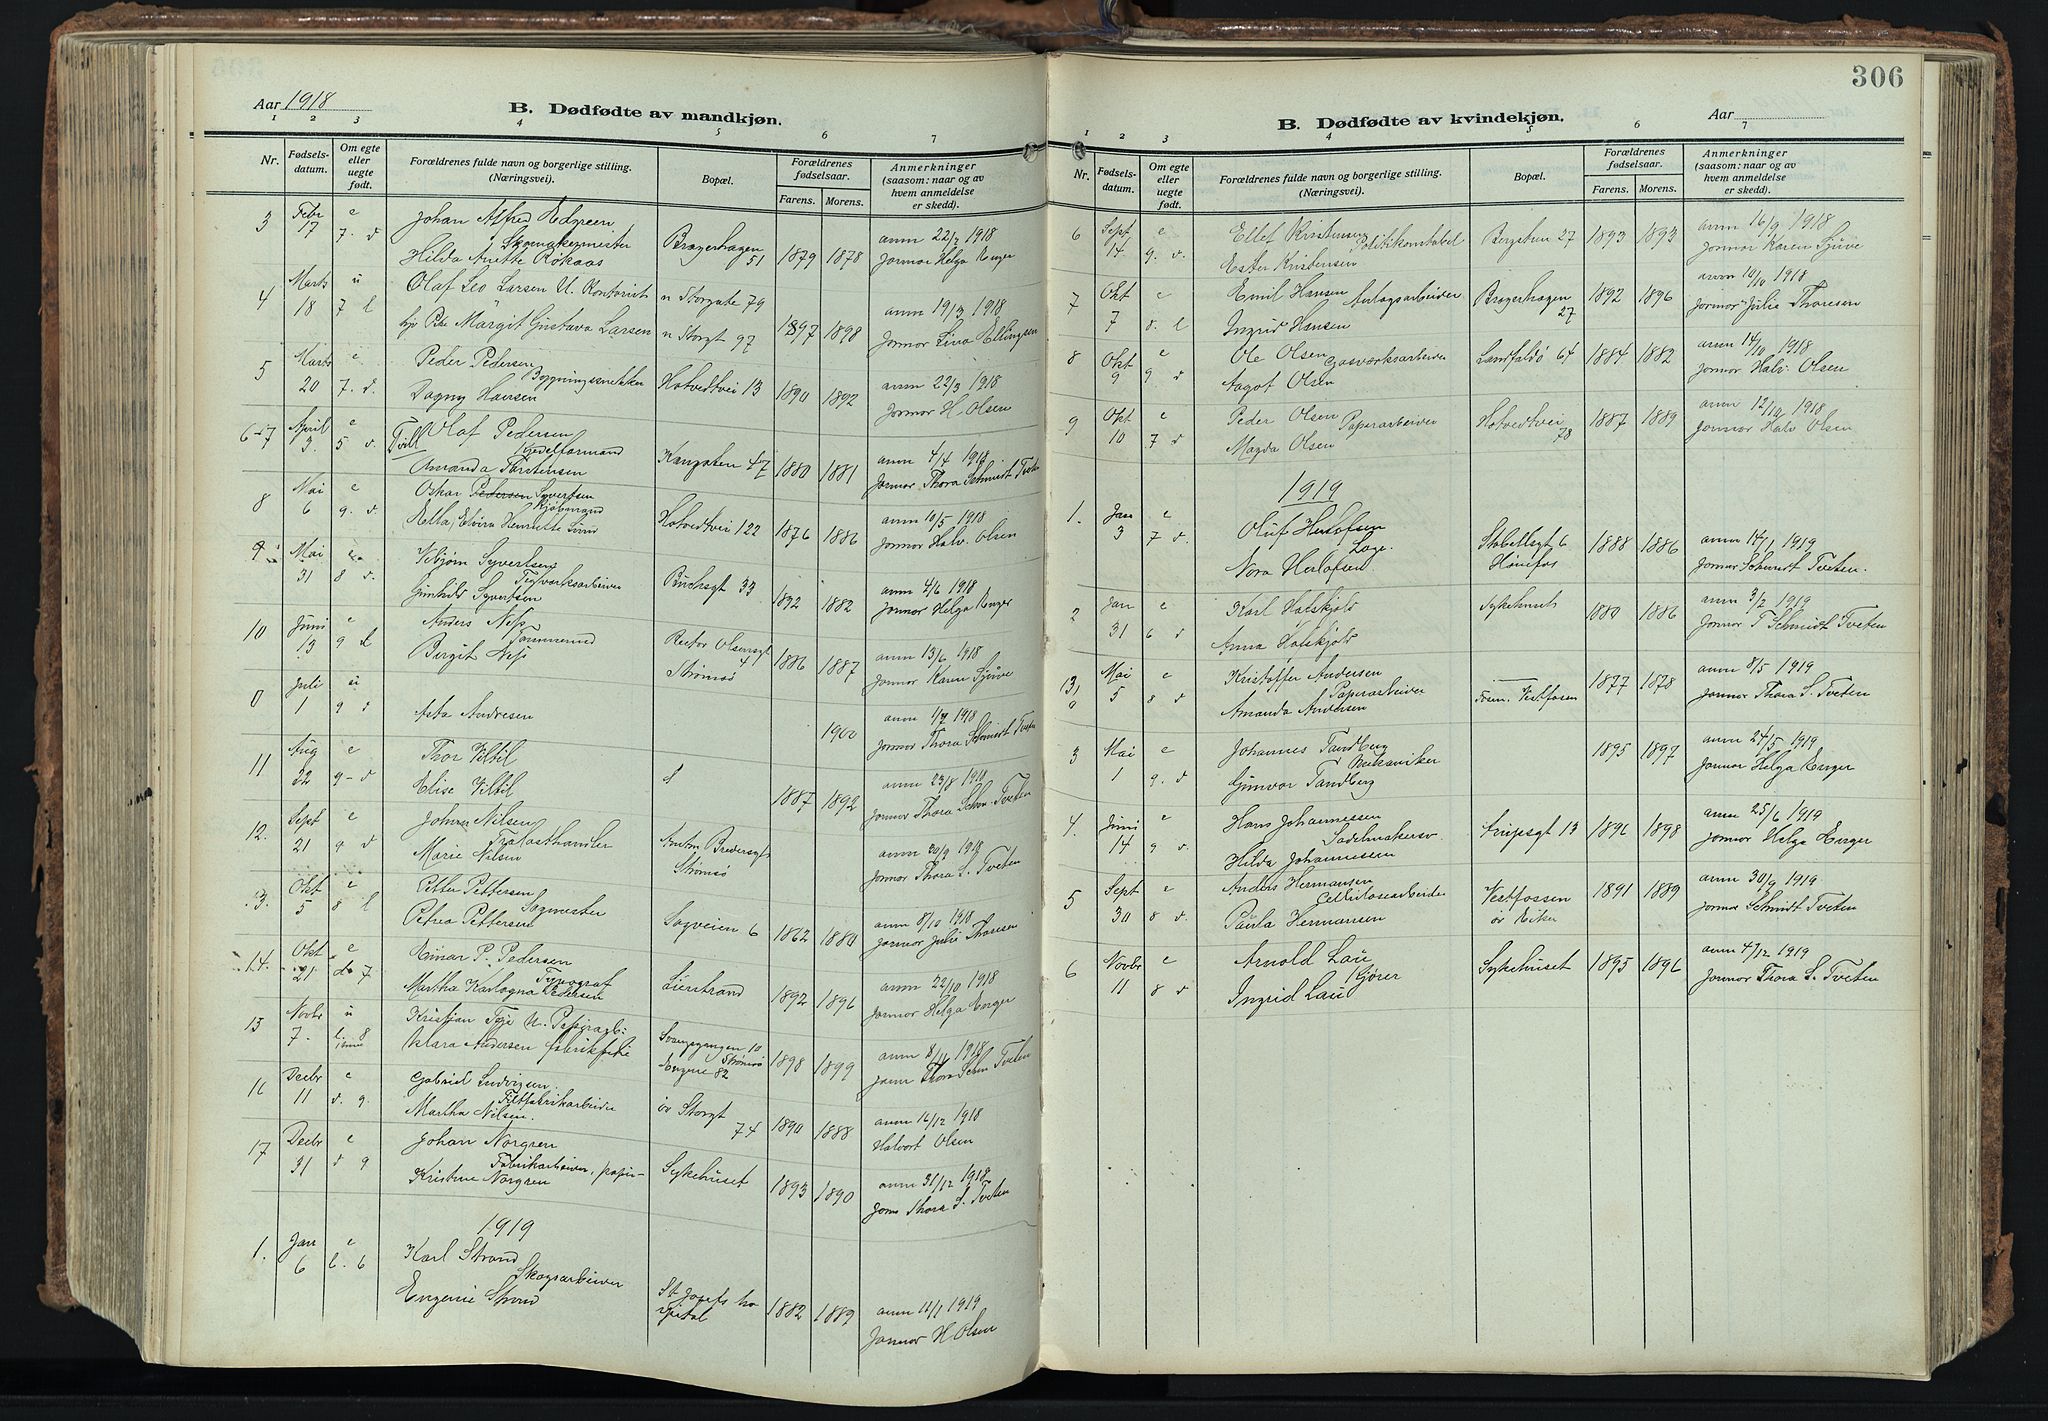 306
Aar 1918
B. Dødfødte av mandkjøn.
1 2 3 4 5 6 7
Nr. Fødselsdatum. Om egte eller uegte født. Forældrenes fulde navn og borgerlige stilling. (Næringsvei). Bopæl. Forældrenes fødselsaar. Farens. Morens. Anmerkninger (saasom: naar og av hvem anmeldelse er skedd).
3 Febr e Johan Alfred
17 7. d Skomakermester Bragerhagen 1879 1878 anm 22/2 1918
Hilda Anette Rokaas 51 Jormor Helga Enger
4 Marts u Olaf Leo Larsen U. Kontorist n Storgate 79
18 7 l Margit Gustava Larsen n Storgt 97 1897 1898 anm 19/3 1918
Jormor Lina Ellingsen
5 Marts e Peder Pedersen
20 7. d. Bygningssnekker Hotvedtvei 13 1890 1892 anm 22/3 1918
Dagny Hansen Jormor H. Olsen
6-7 April e Tvill Olaf Pedersen
3. 5 d. Kangaten 47 1880 1881 anm 4/4 1918
Amanda Torstensen Jormor Thora Schmidt Tveten
8 Mai e Oskar Pedersen Syvertsen
6 9. d. Kjøbmand Hotvedtvei 122 1876 1886 anm 10/5 1918
Ella Elvira Henriette Jormor Halv. Olsen
9 Mai e Syvertsen
31 8 d. Teglverksarbeider 33 1892 1882 anm 4/6 1918
Gunhild Syvertsen Jormor Helga Enger
10 Juni e Anders
13 9 d Tømmermand Rector Olsensgt 4 1886 1887 anm 13/6 1918
Birgit Strømsø Jormor Karen Sjuve
0 Juli u
1 9 d Asta Andresen 1900 anm 1918
Jormor Thora Schmidt Tveten
11 Aug e Thor Viltil
22 9 - d Elise Viltil 1887 1892 anm 23/8 1918
Jormor Thora Schm. Tveten
12. Sept e Johan Nilsen
21 9 d Trælasthandler Anton Bredersgt anm 30/9 1918
Marie Nilsen Strømsø Jormor Thora S. Tveten
13. Okt e Petter Pettersen
5 8 l Sagmester Sagveien 6 1862 1880 anm 8/10 1918
Petrea Pettersen Jormor Julie Thoresen
14. Okt e Einar P. Pedersen
21 do 7 Typograf Lierstrand 1892 1896 anm 22/10 1918
Martha Karlagna Pedersen Jormor Helga Enger
15 Novbr u Kristian
7. 8 Klara Andersen Svangangen 10 Strømsø 1898 1899 anm 8/11 1918
Engene 82 jorm Thora Schm Tveten
16 Decbr e Gabriel Ludvigsen
11 d. 9. Filtfabrikarbeider øv Storgt 74 1890 1888 anm 16/12 1918
Martha Nilsen Halvort Olsen
17 Decbr e Johan Norgren
31 d 9 Fabrikarbeider, papir- Sykehuset 1893 1890 anm 31/12 1918
Kristine Norgren Jorm Thora S. Tveten
1919
1. Jan e Karl Strand
6 l. 6 Skogsarbeider St Josefs hospital 1882 1889 anm 11/1 1919
Eugenie Strand Jormor H Olsen
B. Dødfødte av kvindekjøn.
Aar
1 2 3 4 5 6 7
Nr. Fødselsdatum. Om egte eller uegte født. Forældrenes fulde navn og borgerlige stilling. (Næringsvei). Bopæl. Forældrenes fødselsaar. Farens. Morens. Anmerkninger (saasom: naar og av hvem anmeldelse er skedd).
6 Sept e Ellef Kristensen Politikonstabel Bergstien 27 1893 1893 anm 16/9 1918
14 9. d. Ester Kristensen Jormor Karen Sjuve
7 Okt e Emil Hansen Anlægsarbeider Bragerhagen 27 1892 1896 anm 10/10 1918
7 d. l Ingrid Hansen Jormor Julia Thoresen
8 Okt e Ole Olsen Gasværksarbeider Landfaldø 64 1884 1882 anm 14/10 1918
9 9 d Aagot Olsen Jormor Halv. Olsen
9 Okt e Peder Olsen Papirarbeider Hotvedtvei 78 1887 1889 anm 12/10 1918
10 7 d Magda Olsen Jormor Halv Olsen
1919
1. Jan e Oluf Herlofsen
3 7 d. Stabellsgt 6 Hønefos 1888 1886 anm 14/1 1919
Nora Herlofsen Jormor Schmidt Tveten.
2 Jan e Karl Holskjold Sykehuset 1880 1886 anm 3/2 1919
31 6 d Anna Holskjold Jormor T Schmidt Tveten
Mai e Kristoffer Andersen
5 8 d Papirarbeider Vestfossen 1877 1878 anm 8/5 1919
Amanda Andersen Jormor Thora S. Tveten
3 Mai e Johannes Tandberg 1895 1897 anm 24/5 1919
1 9. d Mekaniker Jormor Helga Enger
Gunvor Tandberg
4. Juni e Hans Johannessen
14 9 d. Sadelmakersv. 13 1896 1898 anm 25/6 1919
Hilda Johannessen Jormor Helga Enger
5 Sept e Anders Hermansen
30 8 d. Cellulosearbeider Vestfossen øv Eiker 1891 1889 anm 30/9 1919
Paula Hermansen Jormor Schmidt Tveten
6 Novbr e Arnold Lau
11 8 d Kjører Sykehuset 1895 1896 anm 4/12 1919
Ingrid Lau Jormor Thora S. Tveten